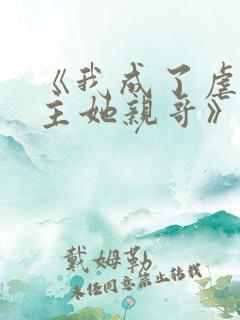 《我成了虐
主她親哥》
戴姆勒
未经同意禁止转载